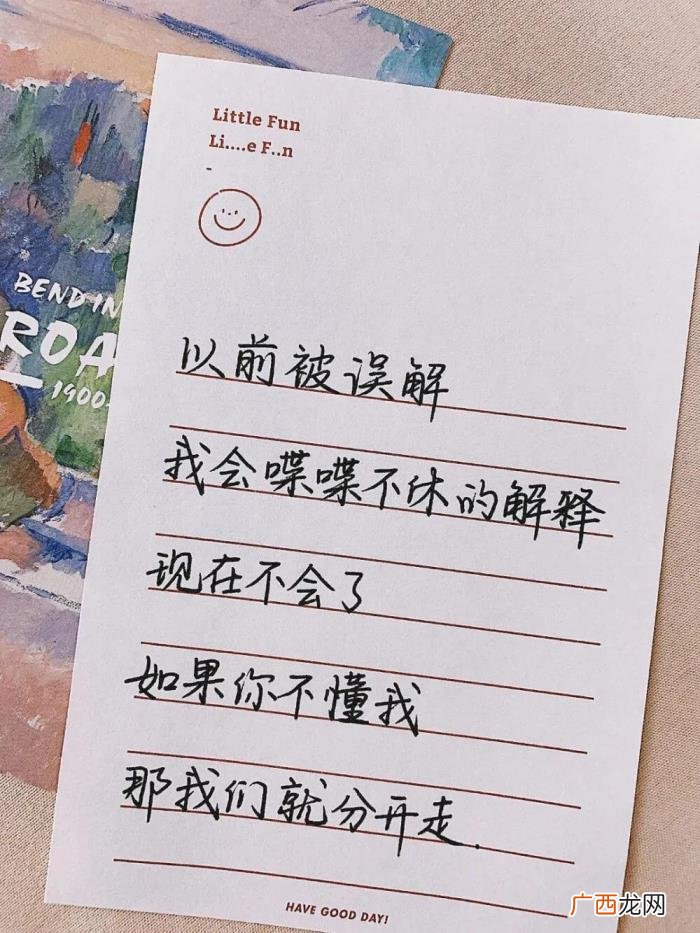 Little Fun
Li....e F..n
BENDIN
ROA
1900-
以前被误解
我会喋喋不休的解释
现在不会了
如果你不懂我
那我们就分开走.
HAVE GOOD DAY!
广西龙网